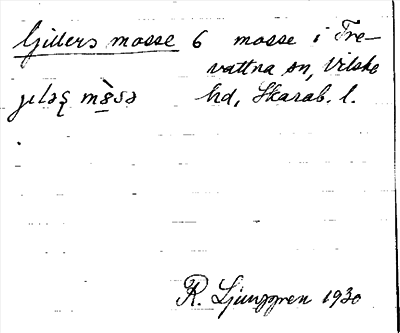 Gillers mosse 6 mosse i Tre-
vattna sn, Vilske
hd, Skarab. l.
R. Ljunggren 1930